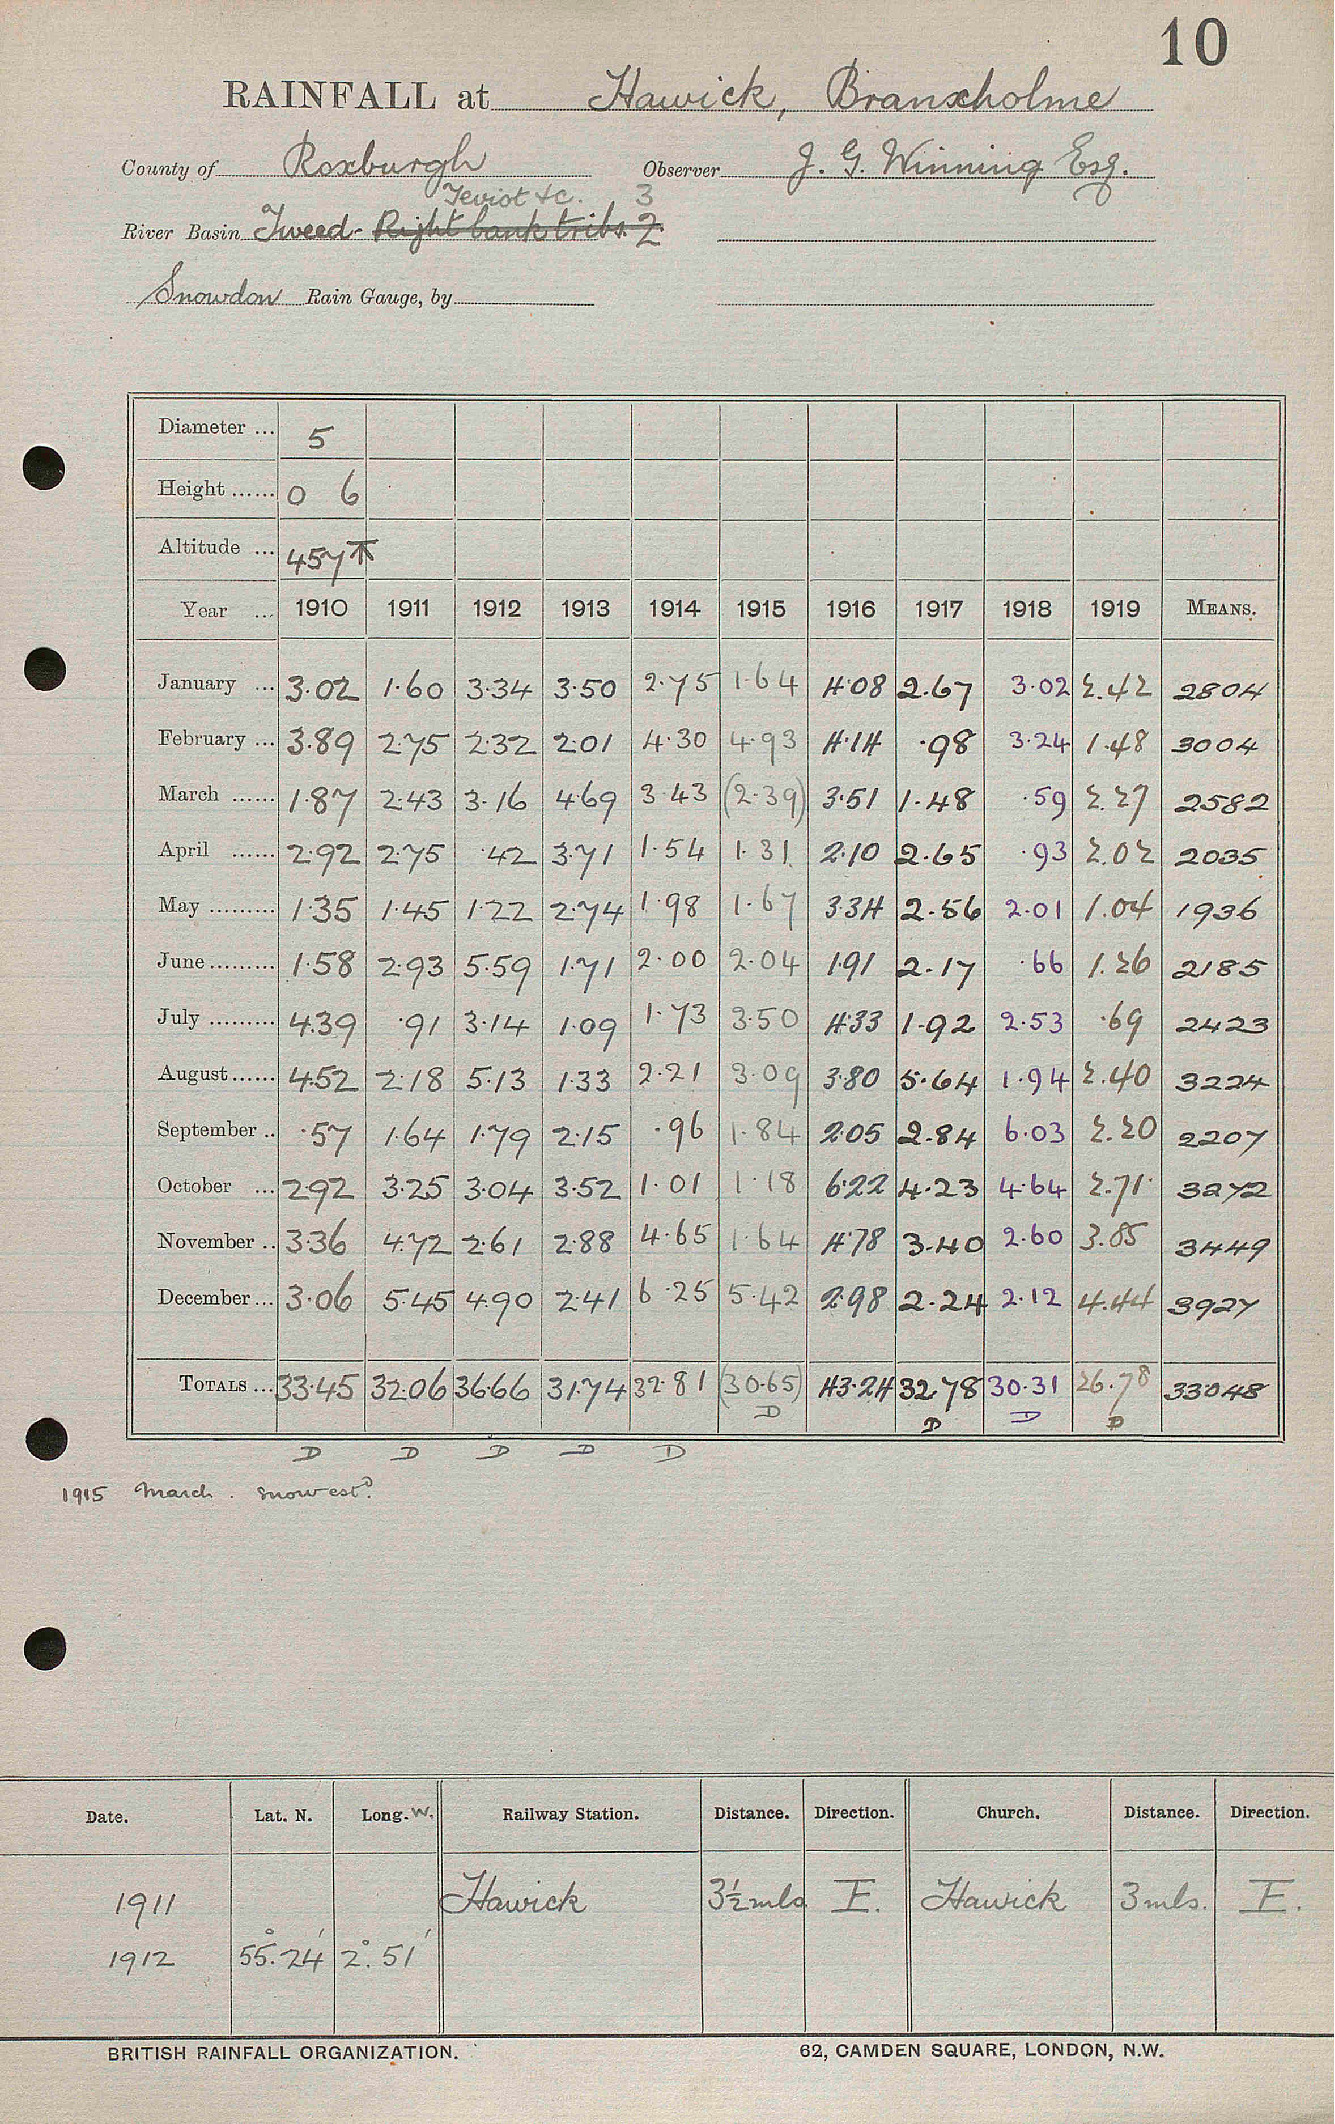 10
RAINFALL at Hawick, Branxholme
County of Roxburgh Observer J. G. Winning Esq.
Teviot &c. 3
River Basin Tweed- Right bank tribs. 2
Snowdon Rain Gauge, by
Diameter ... 5
Height ...... 0 6
Altitude ... 457
Year ... 1910 1911 1912 1913 1914 1915 1916 1917 1918 1919 MEANS.
January ... 3.02 1.60 3.34 3.50 2.75 1.64 4.08 2.67 3.02 2.42 2804
February ... 3.89 2.75 2.32 2.01 4.30 4.93 4.14 .98 3.24 1.48 3004
March ...... 1.87 2.43 3.16 4.69 3.43 (2.39) 3.51 1.48 .59 2.27 2582
April ...... 2.92 2.75 .42 3.71 1.54 1.31 2.10 2.65 .93 2.02 2035
May ......... 1.35 1.45 1.22 2.74 1.98 1.67 3.34 2.56 2.01 1.04 1936
June ......... 1.58 2.93 5.59 1.71 2.00 2.04 1.91 2.17 .66 1.26 2185
July ......... 4.39 .91 3.14 1.09 1.73 3.50 4.33 1.92 2.53 .69 2423
August ...... 4.52 2.18 5.13 1.33 2.21 3.09 3.80 5.64 1.94 2.40 3224
September .. .57 1.64 1.79 2.15 .96 1.84 2.05 2.84 6.03 2.20 2207
October ... 2.92 3.25 3.04 3.52 1.01 1.18 6.22 4.23 4.64 2.71 3272
November .. 3.36 4.72 2.61 2.88 4.65 1.64 4.78 3.40 2.60 3.85 3449
December ... 3.06 5.45 4.90 2.41 6.25 5.42 2.98 2.24 2.12 4.44 3927
TOTALS ... 33.45 32.06 36.66 31.74 32.81 (30.65) 43.24 32.78 30.31 26.78 33048
D D D D
D D D D D
1915 March . Snow estd.
Date. Lat. N. Long. W. Railway Station. Distance. Direction. Church. Distance. Direction.
1911 Hawick 3½ mls. E. Hawick 3 mls. E.
1912 55°. 24' 2°. 51'
BRITISH RAINFALL ORGANIZATION. 62, CAMDEN SQUARE, LONDON, N.W.